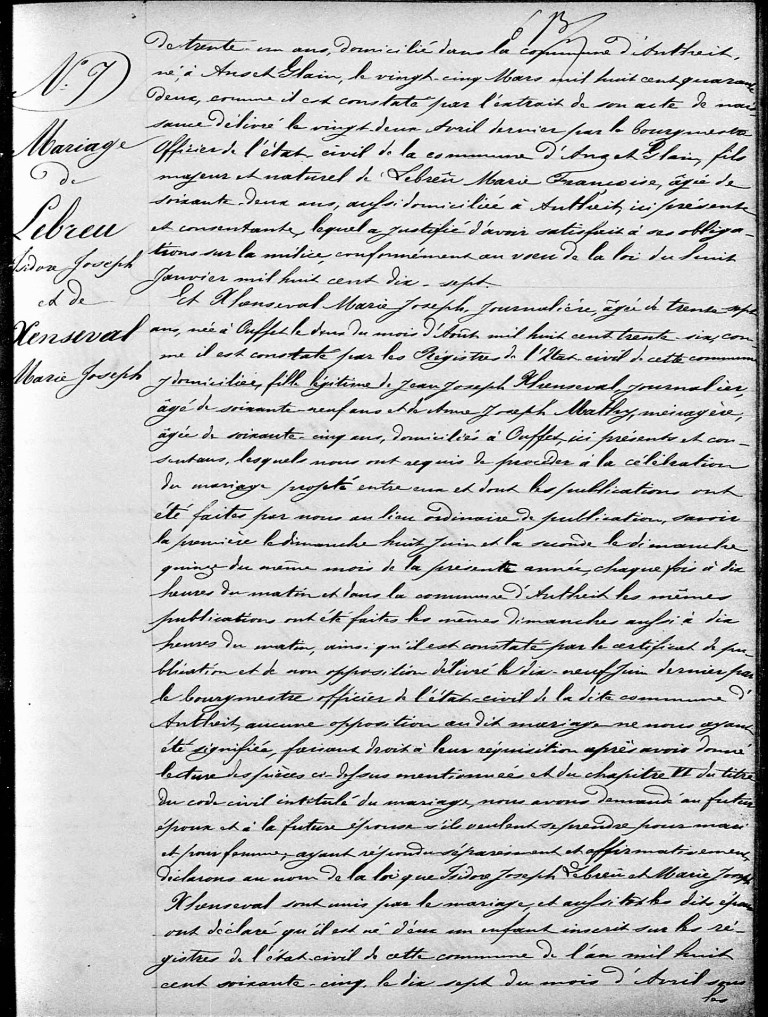 N° 7
Mariage
de
Lebreu
Isidore Joseph
et de
Xhenseval
Marie Joseph
de trente-un ans, domicilié dans la commune d'Antheit,
né, à Ans et Glain, le vingt-cinq Mars mil huit cent quarante
deux, comme il est constaté par l'extrait de son acte de nais-
sance délivré le vingt deux Avril dernier par le bourgmestre
Officier de l'état-civil de la commune d'Ans et Glain, fils
majeur et naturel de Lebreu Marie Françoise, âgée de
soixante-deux ans, aussi domiciliée à Antheit, ici présente
et consentante, lequel a justifié d'avoir satisfait à ses obliga-
tions sur la milice, conformément au vœu de la loi du huit
Janvier mil huit cent dix-sept.
Et Xhenseval Marie Joseph, journalière, âgée de trente sept
ans, née à Ouffet le deux du mois d'Août mil huit cent trente-six, com-
me il est constaté par les Régistres de l'Etat civil de cette commune
y domiciliée, fille légitime de Jean Joseph Xhenseval, journalier,
âgé de soixante-neuf ans et de Anne Joseph Mathy, ménagère,
âgée de soixante-cinq ans, domiciliés à Ouffet, ici présents et con-
sentans, lesquels nous ont requis de procéder à la célébration
du mariage projeté entre eux et dont les publications ont
été faites par nous au lieu ordinaire de publication, savoir
la première le dimanche huit Juin et la seconde le dimanche
quinze du même mois de la présente année, chaque fois à dix
heures du matin et dans la commune d'Antheit les mêmes
publications ont été faites les mêmes dimanches aussi à dix
heures du matin, ainsi qu'il est constaté par le certificat de pu-
blication et de non opposition délivré le dix-neuf Juin dernier par
le bourgmestre officier de l'état-civil de la dite commune d'
Antheit, aucune opposition au dit mariage ne nous ayant
été signifiée, faisant droit à leur réquisition après avoir donné
lecture des pièces ci-dessus mentionnées et du chapitre VI du titre
du code civil intitulé du mariage, nous avons demandé au futur
époux et à la future épouse s'ils veulent se prendre pour mari
et pour femme, ayant répondu séparément et affirmativement,
déclarons au nom de la loi que Isidore Joseph Lebreu et Marie Joseph
Xhenseval sont unis par le mariage, et aussitôt les dits époux
ont déclaré qu'il est né d'eux un enfant inscrit sur les ré-
gistres de l'état-civil de cette commune de l'an mil huit
cent soixante-cinq, le dix sept du mois d'Avril sous
les